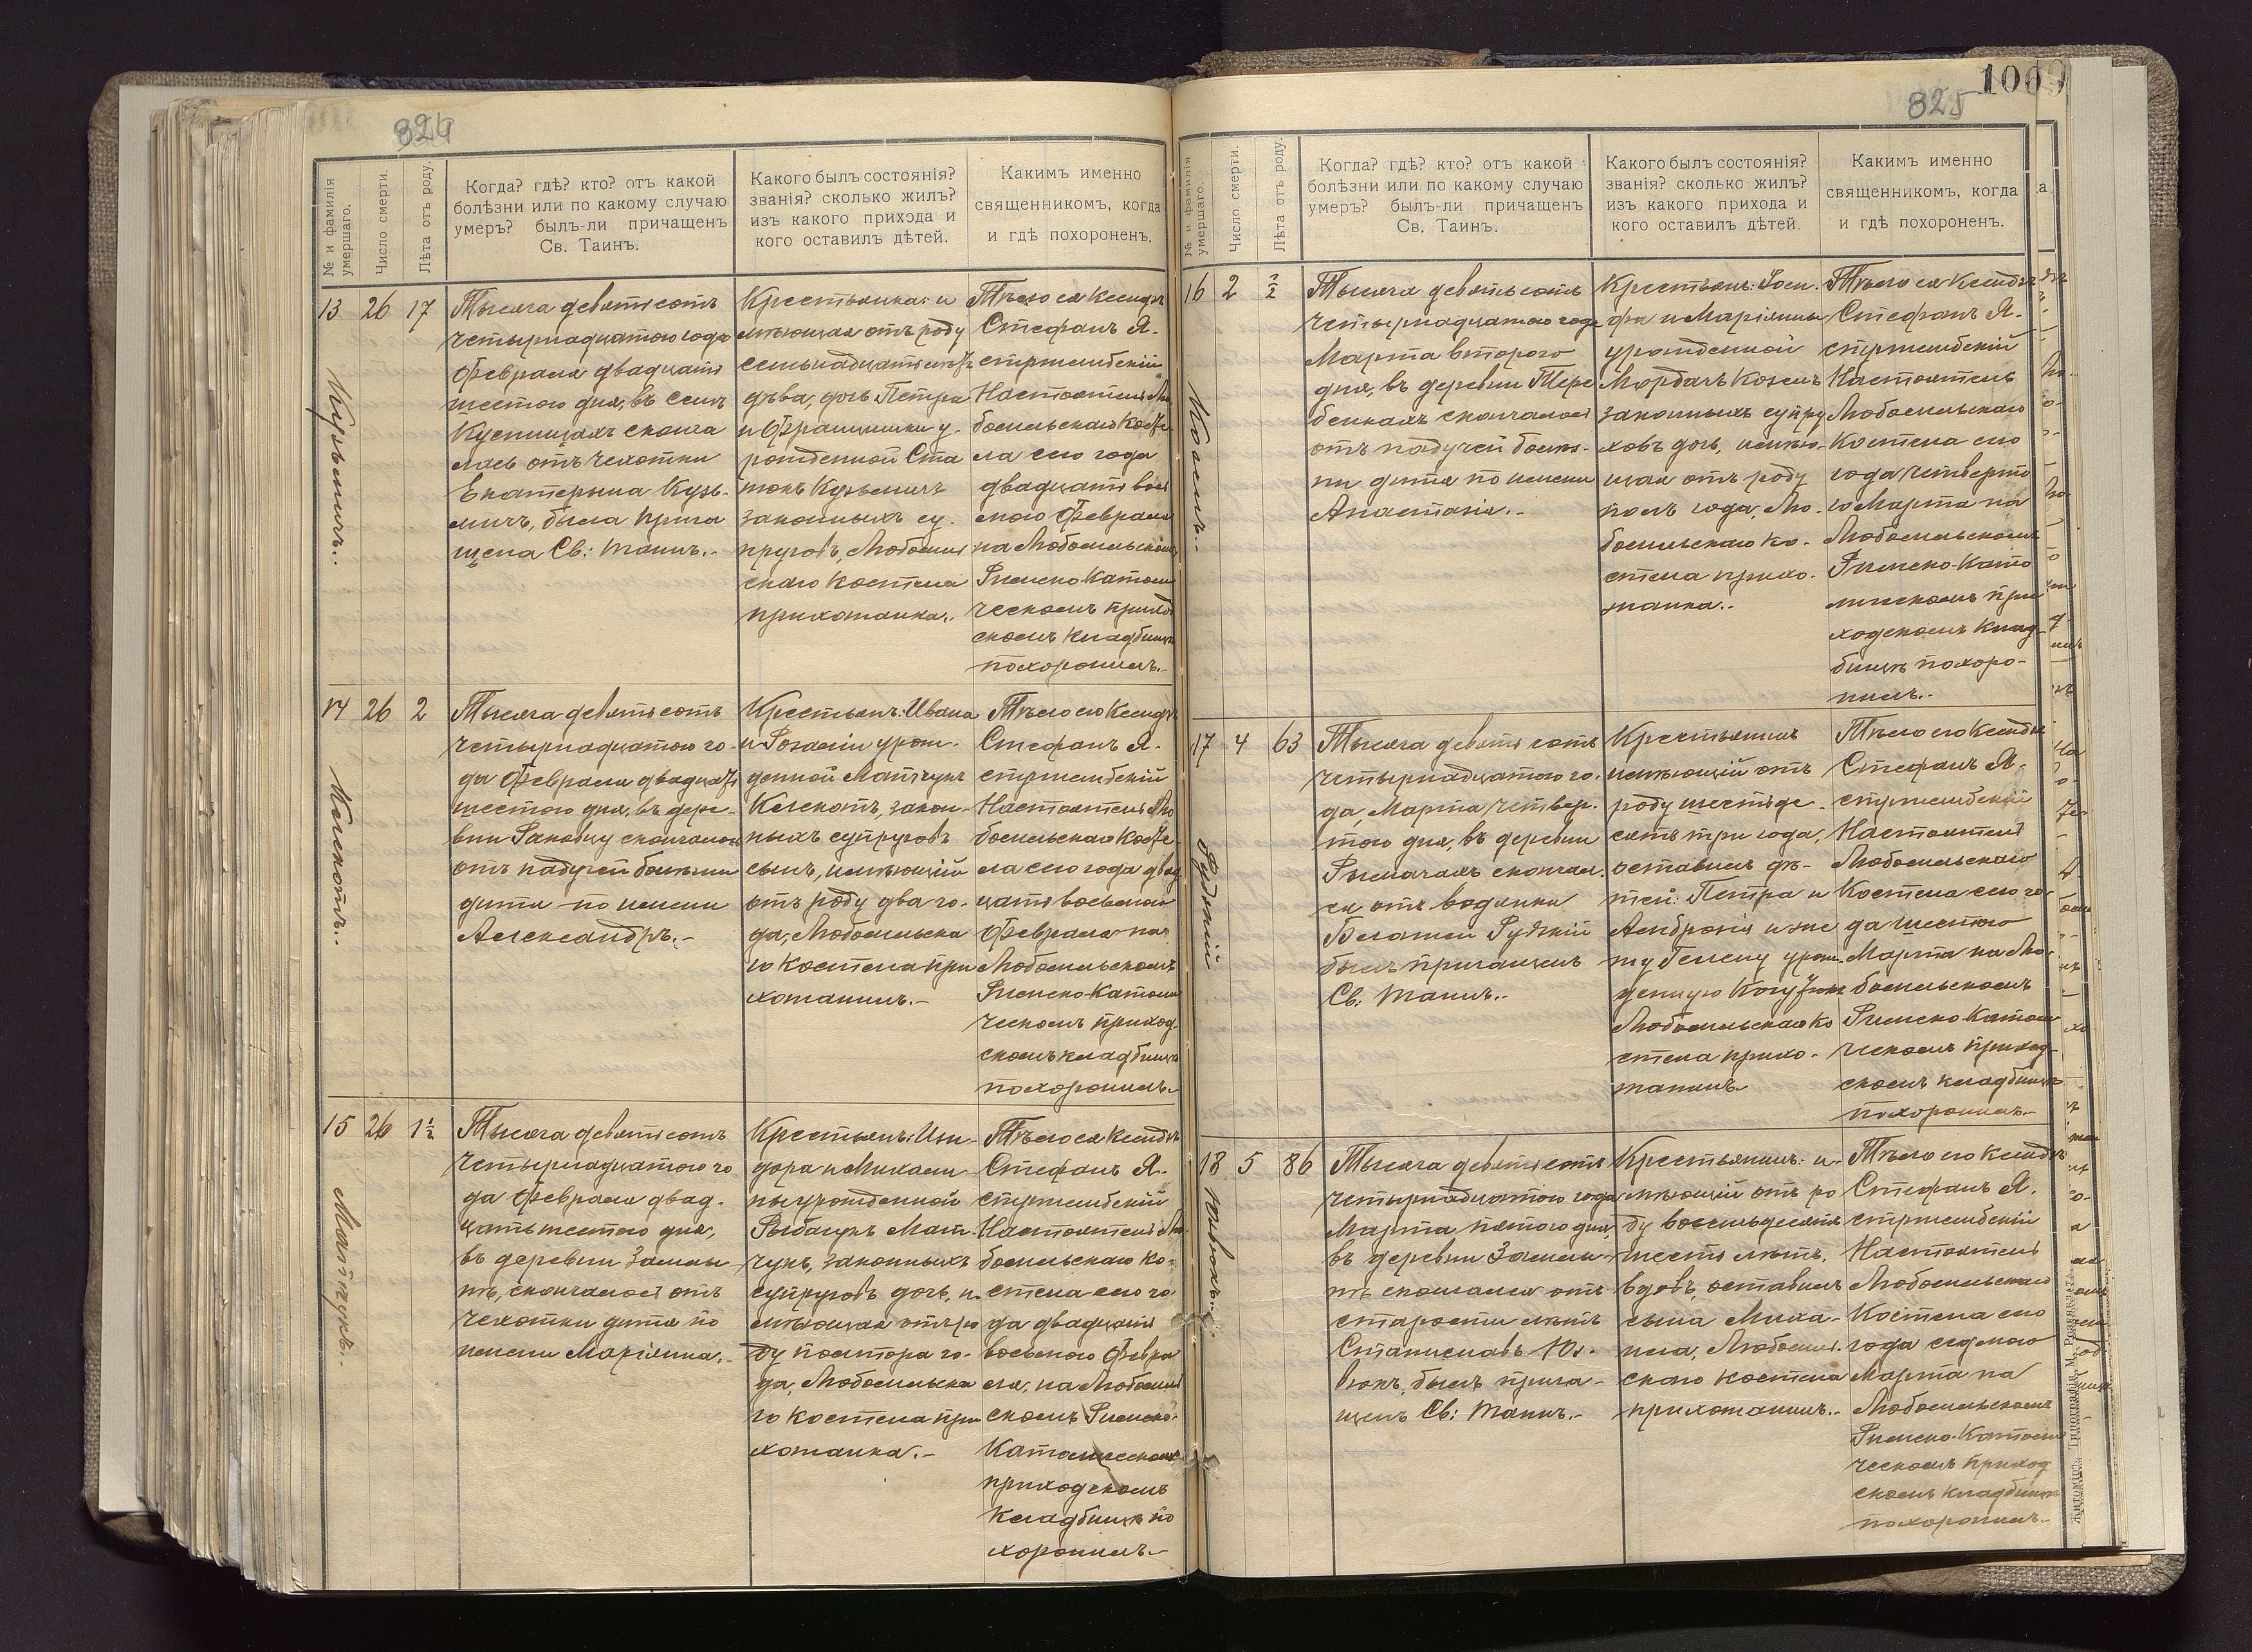 824
№ и фамилія умершаго.
Число смерти.
Лѣта отъ роду.
Когда? гдѣ? кто? отъ какой
болѣзни или по какому случаю
умеръ? былъ-ли причащенъ
Св. Таинъ.
Какого былъ состоянія?
званія? сколько жилъ?
изъ какого прихода и
кого оставилъ дѣтей.
Какимъ именно
священникомъ, когда
и гдѣ похороненъ.
13 26 17
Кузьмичъ.
Тысяча девятьсотъ
четырнадцатого года
Февраля двадцать
шестого дня, въ селѣ
скончалась отъ чахотки
Екатерина Кузь-
мичъ, была прича
щена Св: Таинъ.-
Крестьянка: и
мѣющая отъ роду
семьнадцать лѣтъ
дѣва, дочь Петра
и Францишки у-
рожденной
Кузьмичъ
законныхъ су-
пруговъ, Любомль
скаго костела
прихожанка..
Тѣло ея Ксендзъ
Стефанъ Я-
стржембскій
Настоятель Лю
бомльскаго Косте
ла сего года
двадцать вось
мого Февраля
на Любомльскомъ
Римско Католи
ческомъ приход
скомъ кладбищѣ
похоронилъ.-
14 26 2
Келекотъ.
Тысяча девятьсотъ
четырнадцатого го-
да Февраля двадцать
шестого дня, въ дере-
вни скончалось
отъ падучей болѣзни
дитя по имени
Александръ.-
Крестьянъ: Ивана
и Розаліи урож-
денной Матчукъ
Келекотъ, закон-
ныхъ супруговъ
сынъ, имѣющій
отъ роду два го-
да, Любомльска
го Костела при
хожанинъ.-
Тѣло его Ксендзъ
Стефанъ Я-
стржембскій
Настоятель Лю
бомльскаго Косте-
ла сего года двад
цать восьмого
Февраля на
Любомльскомъ
Римско-Католи
ческомъ приход-
скомъ кладбищѣ
похоронилъ.-
15 26 1½
Матчукъ.
Тысяча девятьсотъ
четырнадцатого го
да Февраля двад-
цать шестого дня,
въ деревни Замлы-
нѣ, скончалось отъ
чахотки дитя по
имени Маріянна.-
Крестьянъ: Иси-
дора и Михали-
ны урожденной
Рыбачукъ Мат-
чукъ, законныхъ
супруговъ дочь, и-
мѣющая отъ ро
ду полтора го-
да, Любомльска
го костела при
хожанка.-
Тѣло ея Ксендзъ
Стефанъ Я-
стржембскій
Настоятель Лю-
бомльскаго ко-
стела сего го
да двадцать
восьмого Февра
ля, на Любомль
скомъ Римско-
Католическомъ
приходскомъ
Кладбищѣ по
хоронилъ.-
825
1009
№ и фамилія умершаго.
Число смерти.
Лѣта отъ роду.
Когда? гдѣ? кто? отъ какой
болѣзни или по какому случаю
умеръ? былъ-ли причащенъ
Св. Таинъ.
Какого былъ состоянія?
званія? сколько жилъ?
изъ какого прихода и
кого оставилъ дѣтей.
Какимъ именно
священникомъ, когда
и гдѣ похороненъ.
16 2 ½
Козелъ.
Тысяча девятьсотъ
четырнадцатого года
Марта второго
дня, въ деревни Тере
бейкахъ скончалось
отъ падучей болѣз-
ни дитя по имени
Анастазія.-
Крестьянъ: Іоси-
фа и Маріянны
урожденной
Мордачъ Козелъ
законныхъ супру
ховъ дочь, имѣю-
щая отъ роду
полъ года, Лю-
бомльскаго ко-
стела прихо-
жанка..
Тѣло ея Ксендзъ
Стефанъ Я-
стржембскій
Настоятель
Любомльскаго
Костела сего
года четверто
го Марта на
Любомльскомъ
Римско-Като
лическомъ при
ходскомъ клад-
бищѣ похоро-
нилъ.-
17 4 63
Рудскій
Тысяча девятьсотъ
четырнадцатого го-
да, Марта четвер-
того дня, въ деревни
Рымачахъ скончал-
ся отъ водянки
Рудскій
былъ причащенъ
Св: Таинъ.-
Крестьянинъ
имѣющій отъ
роду шестьде-
сять три года,
оставилъ дѣ-
тей: Петра и
Амброзія и же
ну Гелену урож-
денную
Любомльскаго Ко
стела прихо-
жанинъ
Тѣло его Ксендзъ
Стефанъ Я-
стржембскій
Настоятель
Любомльскаго
Костела сего го-
да шестого
Марта на Лю-
бомльскомъ
Римско Католи
ческомъ приход-
скомъ кладбищѣ
похоронилъ.-
18 5 86
Ювюкъ.
Тысяча девятьсотъ
четырнадцатого года
Марта пятого дня,
въ деревни Замлы-
нѣ скончался отъ
старости лѣтъ
Станиславъ Ю-
вюкъ, былъ прича-
щенъ Св: Таинъ.-
Крестьянинъ: и-
мѣющій отъ ро
ду восемьдесять
шесть лѣтъ,
вдовъ, оставилъ
сына Миха-
ила, Любомль-
скаго костела
прихожанинъ.-
Тѣло его Ксендзъ
Стефанъ Я-
стржембскій
Настоятель
Любомльскаго
Костела сего
года седмого
Марта на
Любомльскомъ
Римско-Католи
ческомъ приход
скомъ кладбищѣ
похоронилъ.-
Житоміръ. Типографія М.